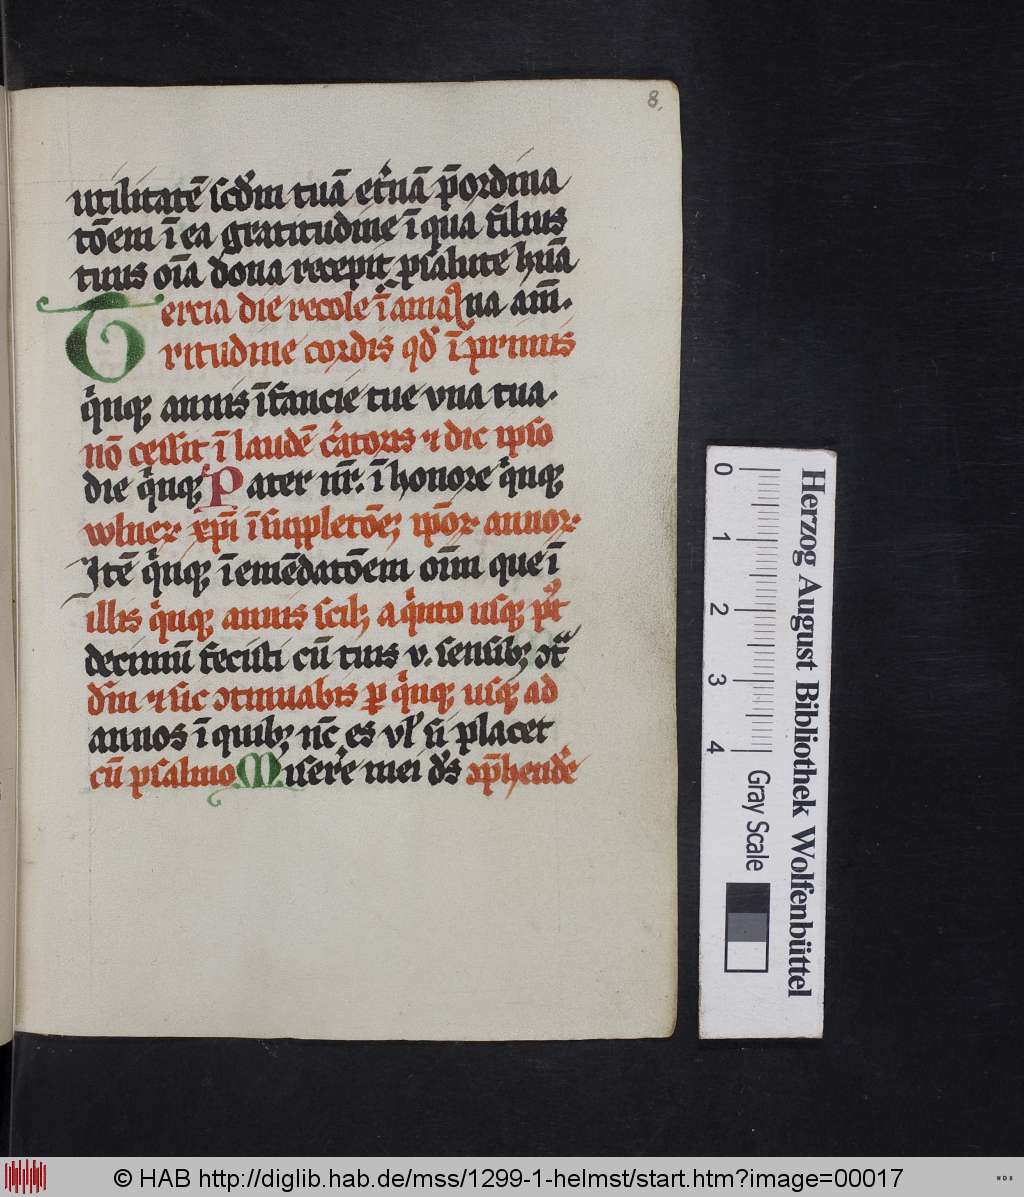 8.
utilitatē scd'm tuā et'nā p̄ordina
tōem ī ea gratitudine ī qua filius
tuus oīa dona recepit p salute hūa
Tercia die recole ī ama na am̄.
ritudine cordis qd' ī primis
q'nq; annis īfancie tue vna tua.
nō cessit ī laudē c'atoris ⁊ dic ipso
die q'nq; Pater nr̄. ī honore q'nq;
wlner xp̄i ī suppletōe; ip̄or annor
Itē q'nq; ī emēdatōem oīm que ī
illis q'nq; annis scil; a q'nto usq;
decimū fecisti cū tuis v. sensib;
dn̄ ⁊ sic ꝯtinuabis p q'nq; usq; ad
annos ī quib; nc̄ es vl' si placet
cū psalmo Misere mei d's ꝯp̄hende
0 1 2 3 4
Gray Scale
Herzog August Bibliothek Wolfenbüttel
© HAB http://diglib.hab.de/mss/1299-1-helmst/start.htm?image=00017